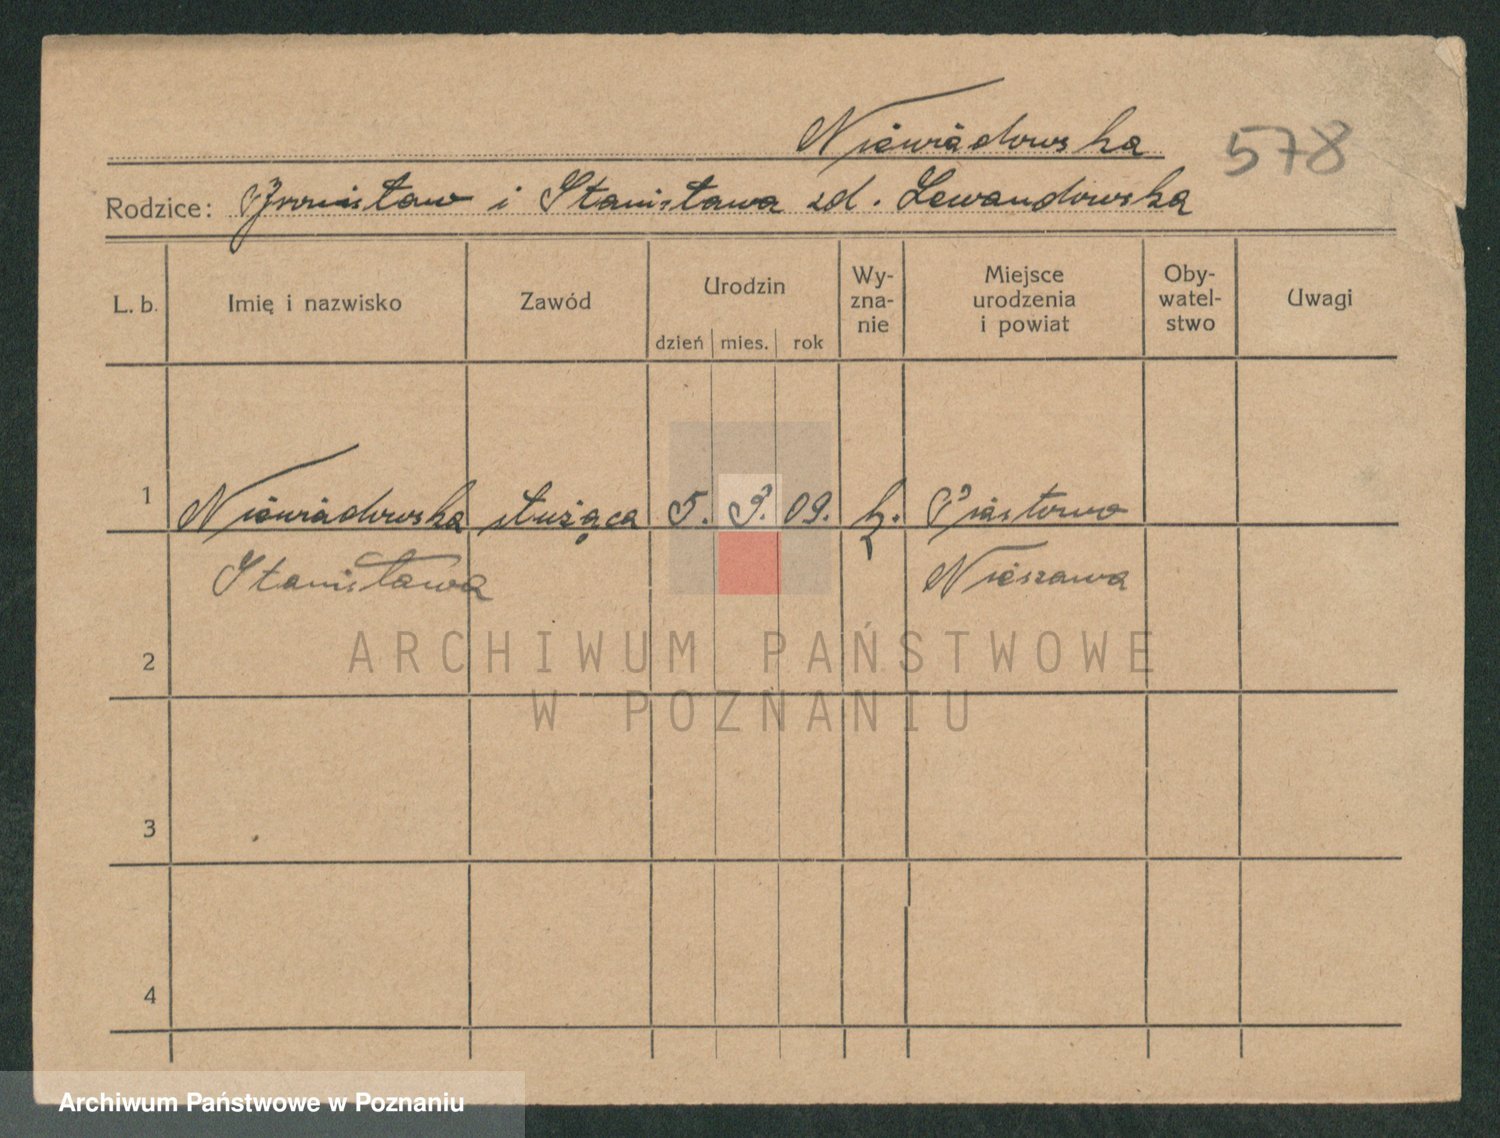 Niewiadowska 578
Rodzice: Bronisław i Stanisława zd. Lewandowska
L. b. Imię i nazwisko Zawód Urodzin dzień mies. rok Wy-zna-nie Miejsce urodzenia i powiat Oby-watel-stwo Uwagi
1 Niewiadowska służąca 5. 3. 09. k. Piastowo
Stanisława Nieszawa
2
ARCHIWUM PAŃSTWOWE
W POZNANIU
3
4
Archiwum Państwowe w Poznaniu